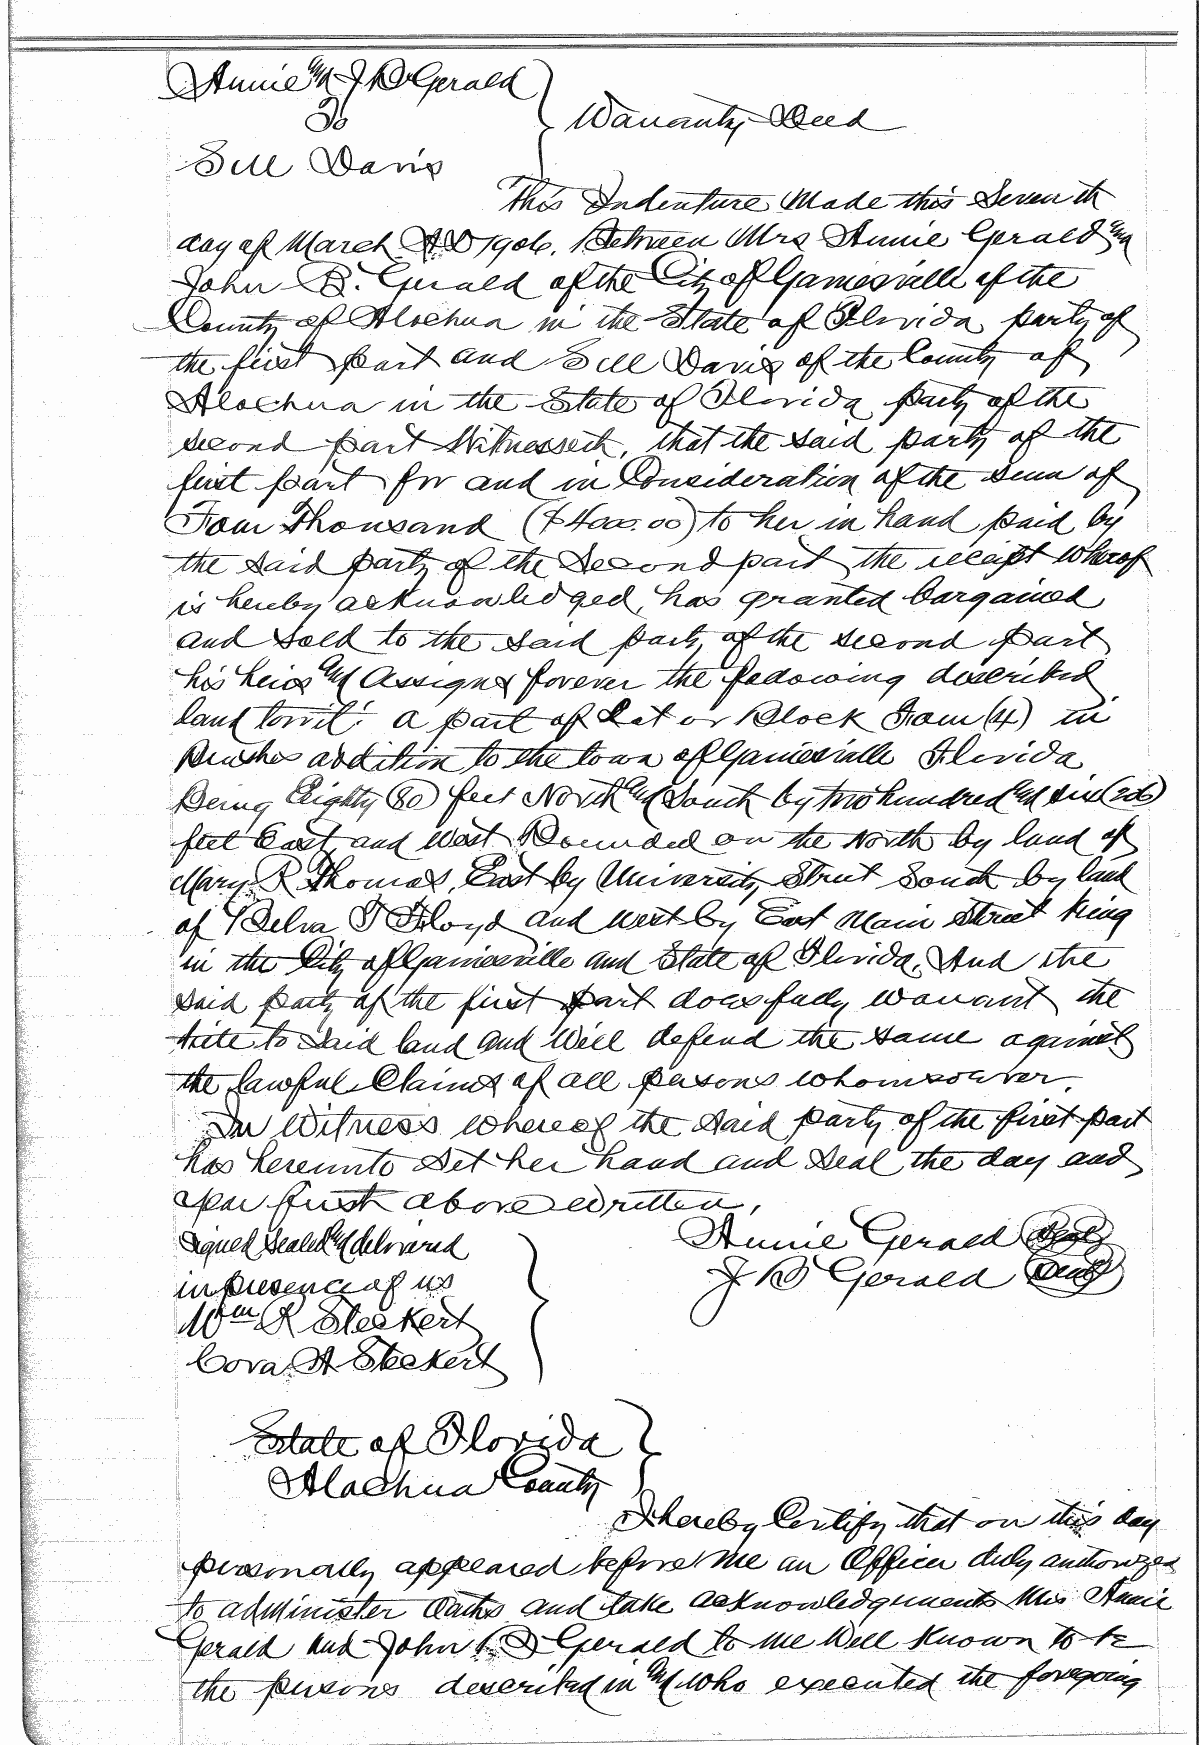 Annie and J B Gerald
To
Sill Davis
Warranty Deed
This Indenture Made this Seventh
day of March A D 1906. Between Mrs Annie Gerald and
John B. Gerald of the City of Gainesville of the
County of Alachua in the State of Florida party of
the first part and Sill Davis of the County of
Alachua in the State of Florida party of the
second part Witnesseth, that the said party of the
first part for and in Consideration of the sum of
Four Thousand ($4000.00) to her in hand paid by
the said party of the second part the receipt wherof
is hereby acknowledged, has granted bargained
and sold to the said party of the second part
his heirs and assigns forever the following described
land towit: a part of Lot or Block Four (4) in
Brushes addition to the town of Gainesville Florida
Being Eighty (80) feet North and South by two hundred and six (206)
feet East and West Bounded on the North by land of
Mary R Thomas, East by University Street South by land
of Belva T Floyd and West by East Main Street lying
in the City of Gainesville and State of Florida. And the
said party of the first part does fully warrant the
title to said land and will defend the same against
the lawful Claims of all persons whomsoever.
In Witness whereof the said party of the first part
has hereunto set her hand and seal the day and
year first above written,
Signed sealed and delivered
in presence of us
Wm R Steckert
Cora A Steckert
Annie Gerald Seal
J B Gerald Seal
State of Florida
Alachua County
I hereby Certify that on this day
personally appeared before me an Officer duly authorized
to administer Oaths and take acknowledgements Mrs Annie
Gerald and John B Gerald to me well known to be
the persons described in and who executed the foregoing